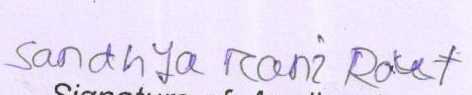 Sandhya Rani Rout
Signature of A